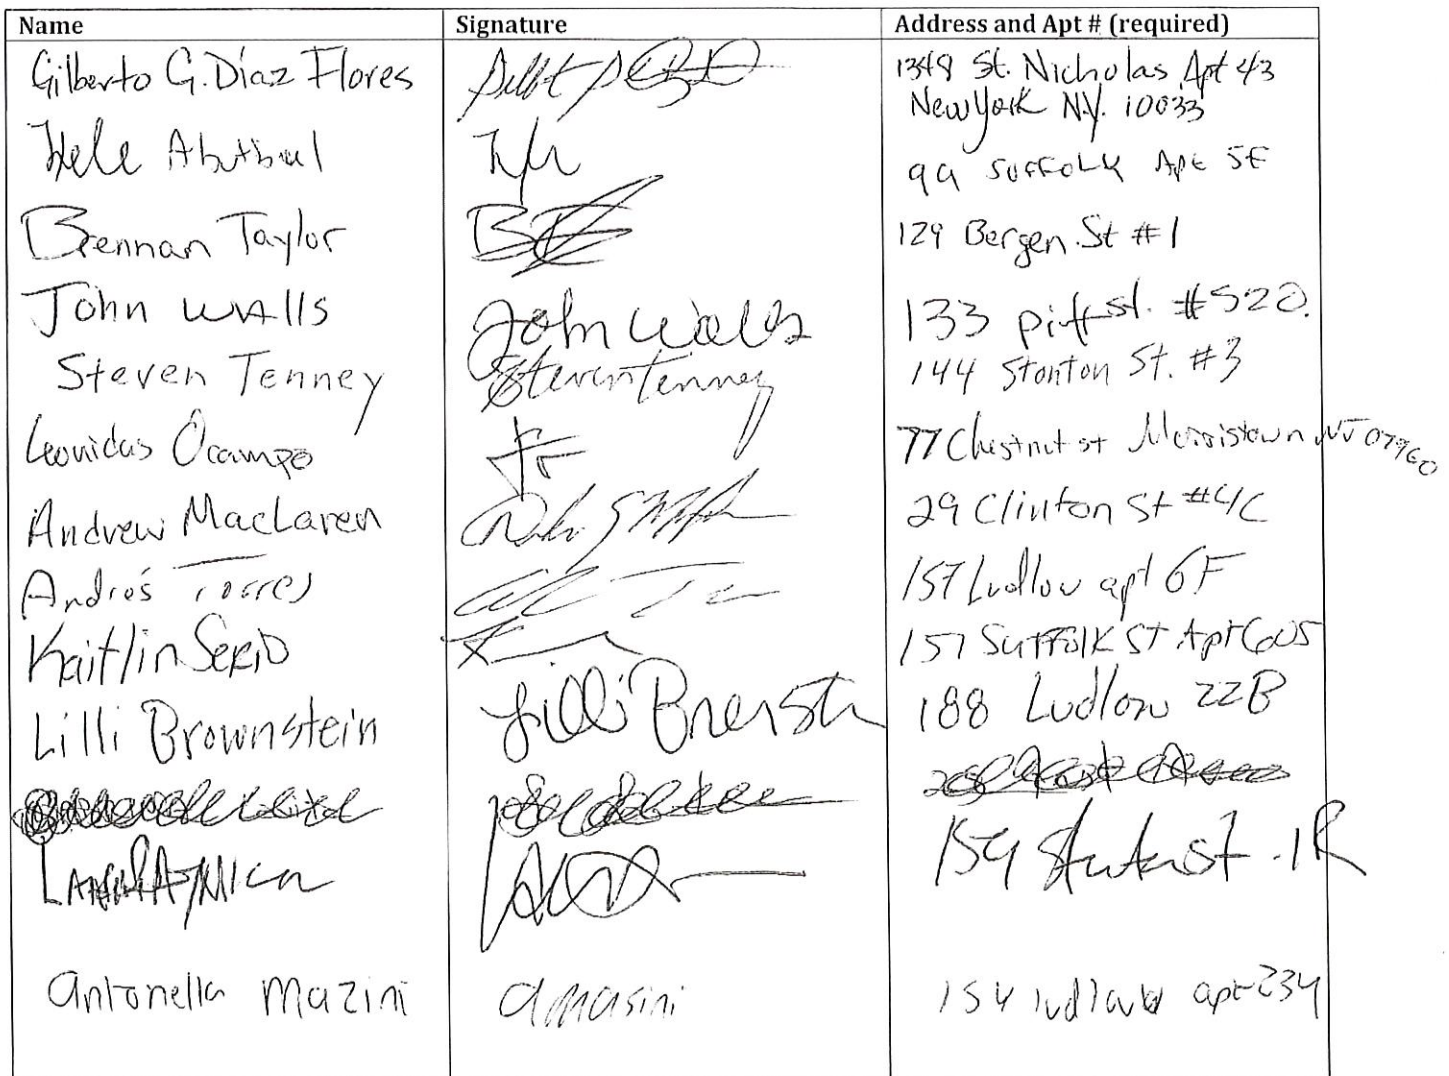 Name Signature Address and Apt # (required)
Gilberto G. Díaz Flores 1348 St. Nicholas Apt 43
New York N.Y. 10033
99 Suffolk Apt 5E
Brennan Taylor 129 Bergen St #1
John Walls John Walls 133 pitt st. #520.
Steven Tenney Steven Tenney 144 Stanton St. #3
Leonidas Ocampo 77 Chestnut st Morristown NJ 07960
Andrew MacLaren 29 Clinton St #4C
Andrés Torres 157 Ludlow apt 6F
Kaitlin Serio 157 Suffolk St Apt 605
Lilli Brownstein Lilli 188 Ludlow 22B
1R
Antonella Mazini amasini 154 ludlow apt 234